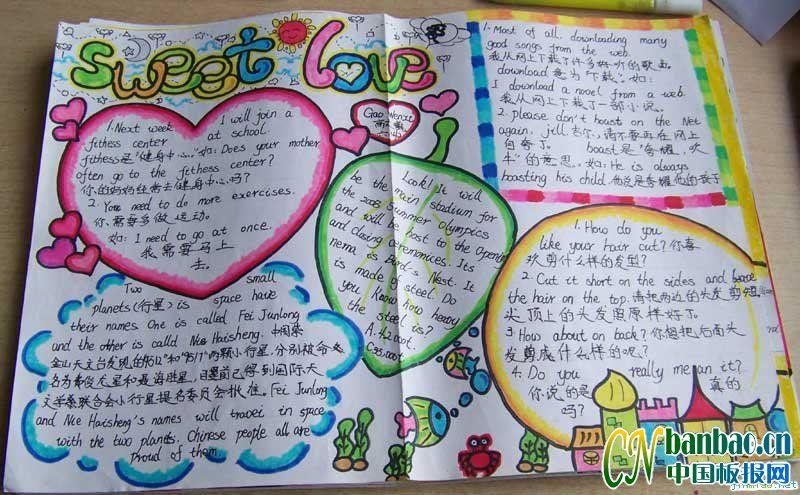 sweet love
1. Next week I will join a
fithess center at school.
fithess是"健身中心。"如: Does your mother
often go to the fithess center?
你的妈妈经常去健身中心吗?
2. You need to do more exercises.
你需要多做运动。
如: I need to go at once.
我需要马上
去。
Gao Wenxi
Look! It will
be the main stadium for
the 2008 Summer Olympics
and will be host to the Opening
and closing ceremonices. Its
nema is Bird's Nest. It
is made of steel. Do
you know how heavy
the steel is?
A. 42000t.
C. 35000t
1. Most of all. downloading many
good songs from the web.
我从网上下载了许多好听的歌曲。
download 意为"下载"。如:
I download a novel from a web.
我从网上下载了一部小说。
2. please don't boast on the Net
again, jill 吉尔,请不要再在网上
自夸了。 boast是"夸耀,吹
牛"的意思。如: He is always
boasting his child. 他总是夸耀他的孩子
Two small
planets(行星) is space have
their names One is called Fei Junlong
and the other is called Nie Haisheng. 中国紫
金山天文台发现的"9512"和"9517"两颗小行星,分别被命
名为费俊龙星和聂海胜星,目前已得到国际天
文学联合会小行星提名委员会批准。Fei Junlong
and Nie Haisheng's names will travel in space
with the two planets. Chinese people all are
Proud of them
1. How do you
like your hair cut? 你喜
欢剪什么样的发型?
2. Cut it short on the sides and leave
the hair on the top. 请把两边的头发剪短
头顶上的头发留原样好了。
3. How about on back? 你想把后面头
发剪成什么样的呢?
4. Do you really mean it?
你说的是 真的
吗?
CNbanbao.cn
中国板报网